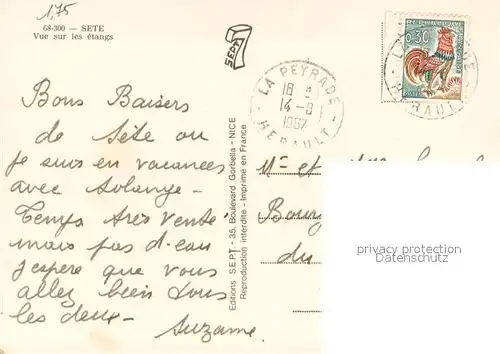 1,75
68-300 — SETE
Vue sur les étangs
SEPT
LA PEYRADE
18 H
14-8
1967
HERAULT
0,30
Bons Baisers
de Sète ou
je suis en vacances
avec Solange -
Temps très venté
mais pas d'eau
j'espère que vous
allez bien tous
les deux -
Suzanne.
Editions S.E.P.T - 35, Boulevard Gorbella - NICE
Reproduction interdite - Imprimé en France
Mr et
du
privacy protection
Datenschutz